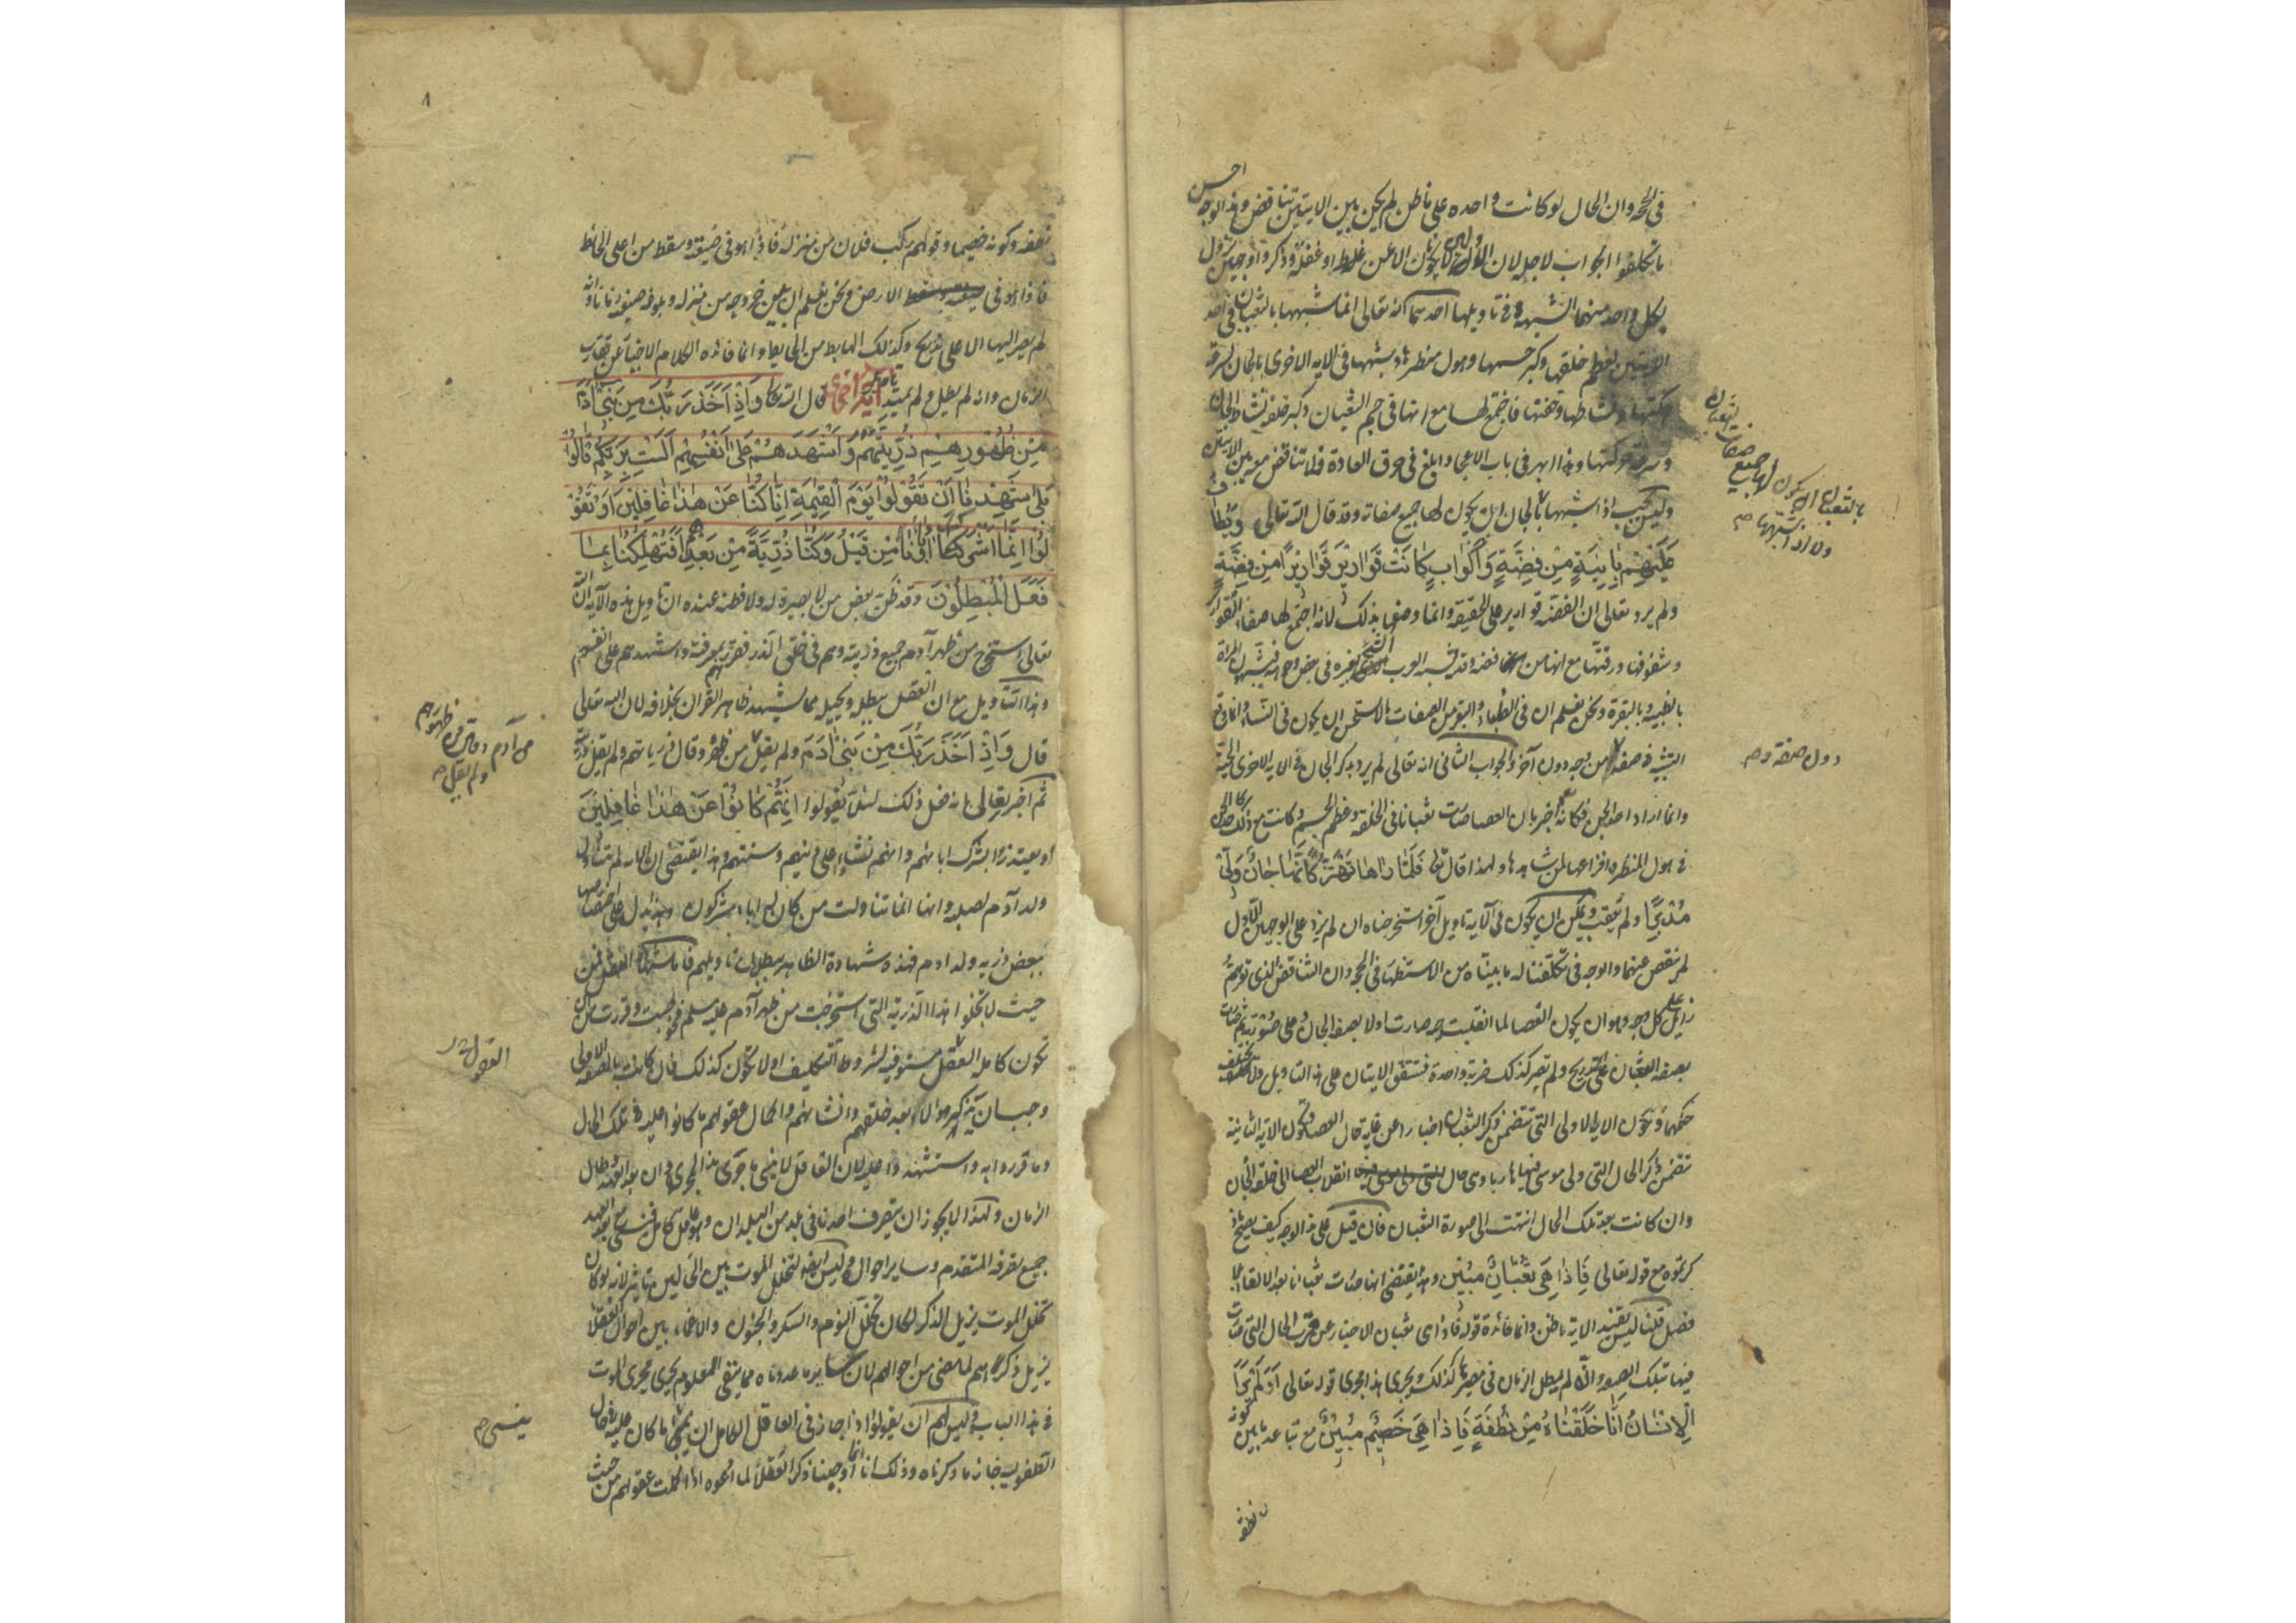 احسن
في الجحة وان الحال لو كانت واحده على ما ظن لم يكن بين الايتين تناقض وهذا الوجه
ما تكلفوا الجواب لاجله لان الاولين لا يكون الا عن غلط او غفلة وذكروا وجهين تزول
بكل واحد منهما الشبهة في تاويلها احدهما انه تعالى انما شبهها بالثعبان في احد
الايتين لعظم خلقها وكبر جسمها وهول منظرها وشبهها في الاية الاخرى بالجان لسرعة
حركتها ونشاطها وخفتها فاجتمع لها مع انها في جسم الثعبان وكبر خلقه نشاط الجان
وسرعة حركتها وهذا ابهر في باب الاعجاز وابلغ في خرق العادة ولا تناقض معه بين الايتين
وليس يجب اذا شبهها بالجان ان يكون لها جميع صفاته وقد قال الله تعالى ويطاف
عَلَيْهِمْ بِانِيَةٍ مِنْ فِضَّةٍ وَاَكْوَابٍ كَانَتْ قَوَارِيرَ قَوَارِيرًا مِنْ فِضَّةٍ
ولم يرد تعالى ان الفضة قوارير على الحقيقة وانما وصفها بذلك لانه اجتمع لها صفاء القوارير
وشفوفها ورقتها مع انها من فضة وقد تشبه العرب الشيء بغيره في بعض وجوهه فيشبهون المراة
بالظبية وبالبقرة ونحن نعلم ان في الظباء والبقر من الصفات ما لا يستحسن ان يكون في النساء وانما وقع
التشبيه في صفة من وجه دون آخر والجواب الثاني انه تعالى لم يرد بذكر الجان في الاية الاخرى الحية
وانما اراد احد الجن فكانه اخبر بان العصا صارت ثعبانا في الخلقة وعظم الجسم وكانت مع ذلك كاحد الجن
في هول المنظر وافزاعها لمن شاهدها ولهذا قال تعالى فَلَمَّا رَاهَا تَهْتَزُّ كَاَنَّهَا جَانٌّ وَلّٰى
مُدْبِرًا ولم يعقب ويمكن ان يكون في الآية تاويل آخر استخرجناه ان لم يزد على الوجهين الاولين
لم ينقص عنهما والوجه في تكلفنا له ما بيناه من الاستظهار في الحجة وان التناقض الذي توهم
زايل على كل وجه وهو ان يكون العصا لما انقلبت حية صارت اولا بصفة الجان وعلى صورته ثم صارت
بصفة الثعبان على تدريج ولم تصر كذلك ضربة واحدة فتتفق الايتان على هذا التاويل ولا يختلف
حكمهما وتكون الاية الاولى التي تتضمن ذكر الثعبان اخبارا عن غاية حال العصا وتكون الاية الثانية
تتضمن ذكر الحال التي ولى موسى فيها هاربا وهي حال انقلاب العصا الى خلقة الجان
وان كانت بعد تلك الحال انتهت الى صورة الثعبان فان قيل على هذا الوجه كيف يصح ما ذ
كرتموه مع قوله تعالى فَاِذَا هِيَ ثُعْبَانٌ مُبِيْنٌ وهذا يقتضي انها صارت ثعبانا بعد الالقاء بلا
فصل قلنا ليس يفيد الاية ما ظن وانما فائدة قوله فاذا هي ثعبان الاخبار عن قرب الحال التي صارت
فيها بتلك الصورة وانه لم يطل الزمان في مصيرها كذلك ويجري هذا مجرى قوله تعالى اَوَلَمْ يَرَ
الْاِنْسَانُ اَنَّا خَلَقْنَاهُ مِنْ نُطْفَةٍ فَاِذَا هِيَ خَصِيْمٌ مُبِيْنٌ مع تباعد ما بين كونه
نطفة
بالثعبان ان يكون لها جميع صفات الثعبان
ولا اذا شبهها م
دون صفة وم
٨
نطفة وكونه خصيما وقولهم ركب فلان من منزله فاذا هو في ضيعته وسقط من اعلى الحائط
فاذا هو في الارض ونحن نعلم ان بين خروجه من منزله وبلوغه ضيعته زمانا وانه
لم يصر اليها الا على تدريج وكذلك الهابط من الحايط وانما فائدة الكلام الاخبار عن تقارب
الزمان وانه لم يطل ولم يمتد تاويل آية اخرى قال الله تعالى وَاِذْ اَخَذَ رَبُّكَ مِنْ بَنِيْ اٰدَمَ
مِنْ ظُهُوْرِهِمْ ذُرِّيَّتَهُمْ وَاَشْهَدَهُمْ عَلٰى اَنْفُسِهِمْ اَلَسْتُ بِرَبِّكُمْ قَالُوْا
بَلٰى شَهِدْنَا اَنْ تَقُوْلُوْا يَوْمَ الْقِيٰمَةِ اِنَّا كُنَّا عَنْ هٰذَا غَافِلِيْنَ اَوْ تَقُوْ
لُوْا اِنَّمَا اَشْرَكَ اٰبَاؤُنَا مِنْ قَبْلُ وَكُنَّا ذُرِّيَّةً مِنْ بَعْدِهِمْ اَفَتُهْلِكُنَا بِمَا
فَعَلَ الْمُبْطِلُوْنَ وقد ظن بعض من لا بصيرة له ولا فطنة عنده ان تاويل هذه الآية ان الله
تعالى استخرج من ظهر آدم جميع ذريته وهم في خلق الذر فقررهم بمعرفته واشهدهم على انفسهم
وهذا التاويل مع ان العقل يبطله ويحيله مما يشهد ظاهر القران بخلافه لان الله تعالى
قال وَاِذْ اَخَذَ رَبُّكَ مِنْ بَنِيْ اٰدَمَ ولم يقل من ظهره وقال ذرياتهم ولم يقل ذريته
ثم اخبر تعالى بانه فعل ذلك لئلا يقولوا اِنَّهُمْ كَانُوْا عَنْ هٰذَا غَافِلِيْنَ
او يعتذروا بشرك ابائهم وانهم نشاوا على دينهم وسنتهم وهذا يقتضي ان الاية لم تتناول
ولد آدم لصلبه وانها انما تناولت من كان له اباء مشركون وهذا يدل على اختصاصها
ببعض ذرية ولد ادم فهذه شهادة الظاهر ببطلان تاويلهم فاما شهادة العقل فمن
حيث لا تخلوا هذه الذرية التي استخرجت من ظهر آدم عليه سلم فخوطبت وقررت من ان
تكون كاملة العقل مستوفية لشروط التكليف اولا تكون كذلك فان كانت بالصفة الاولى
وجب ان يذكر هؤلاء بعد خلقهم وانشائهم واكمال عقولهم ما كانوا عليه في تلك الحال
وما قرروا به واستشهدوا عليه لان العاقل لا ينسى ما جرى هذا المجرى وان بعد العهد وطال
الزمان ولهذا لا يجوز ان يتصرف احدنا في بلد من البلدان وهو عاقل كامل فينسى مع بعد العهد
جميع تصرفه المتقدم وساير احواله وليس ايضا لتخلل الموت بين الحالين تاثير لانه لو كان
تخلل الموت يزيل الذكر لكان تخلل النوم والسكر والجنون والاغماء بين احوال العقلاء
يزيل ذكرهم لما مضى من احوالهم لان ساير ما عددناه مما ينفي العلوم يجري مجرى الموت
في هذا الباب وليس لهم ان يقولوا اذا جاز في العاقل الكامل ان ينسى ما كان عليه في حال
الطفولية جاز ما ذكرناه وذلك انا انما اوجبنا ذكر العقلاء لما ادعوه اذا كملت عقولهم من حيث
من آدم وقال من ظهورهم
ولم يقل م
العقول
ينسى م